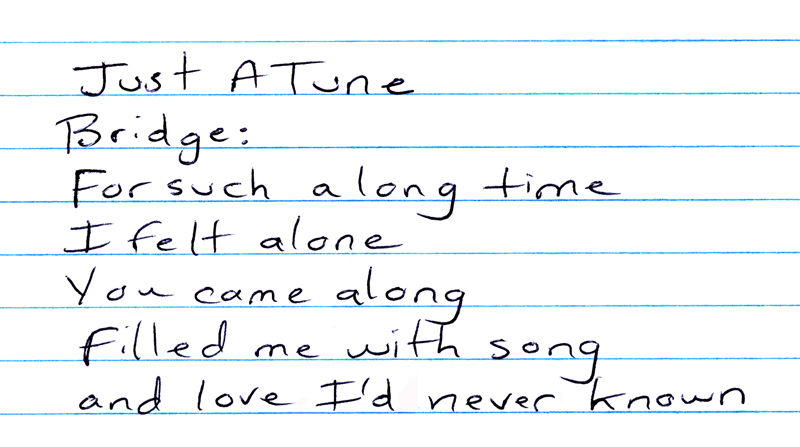 Just A Tune
Bridge:
For such a long time
I felt alone
You came along
Filled me with song
and love I'd never known